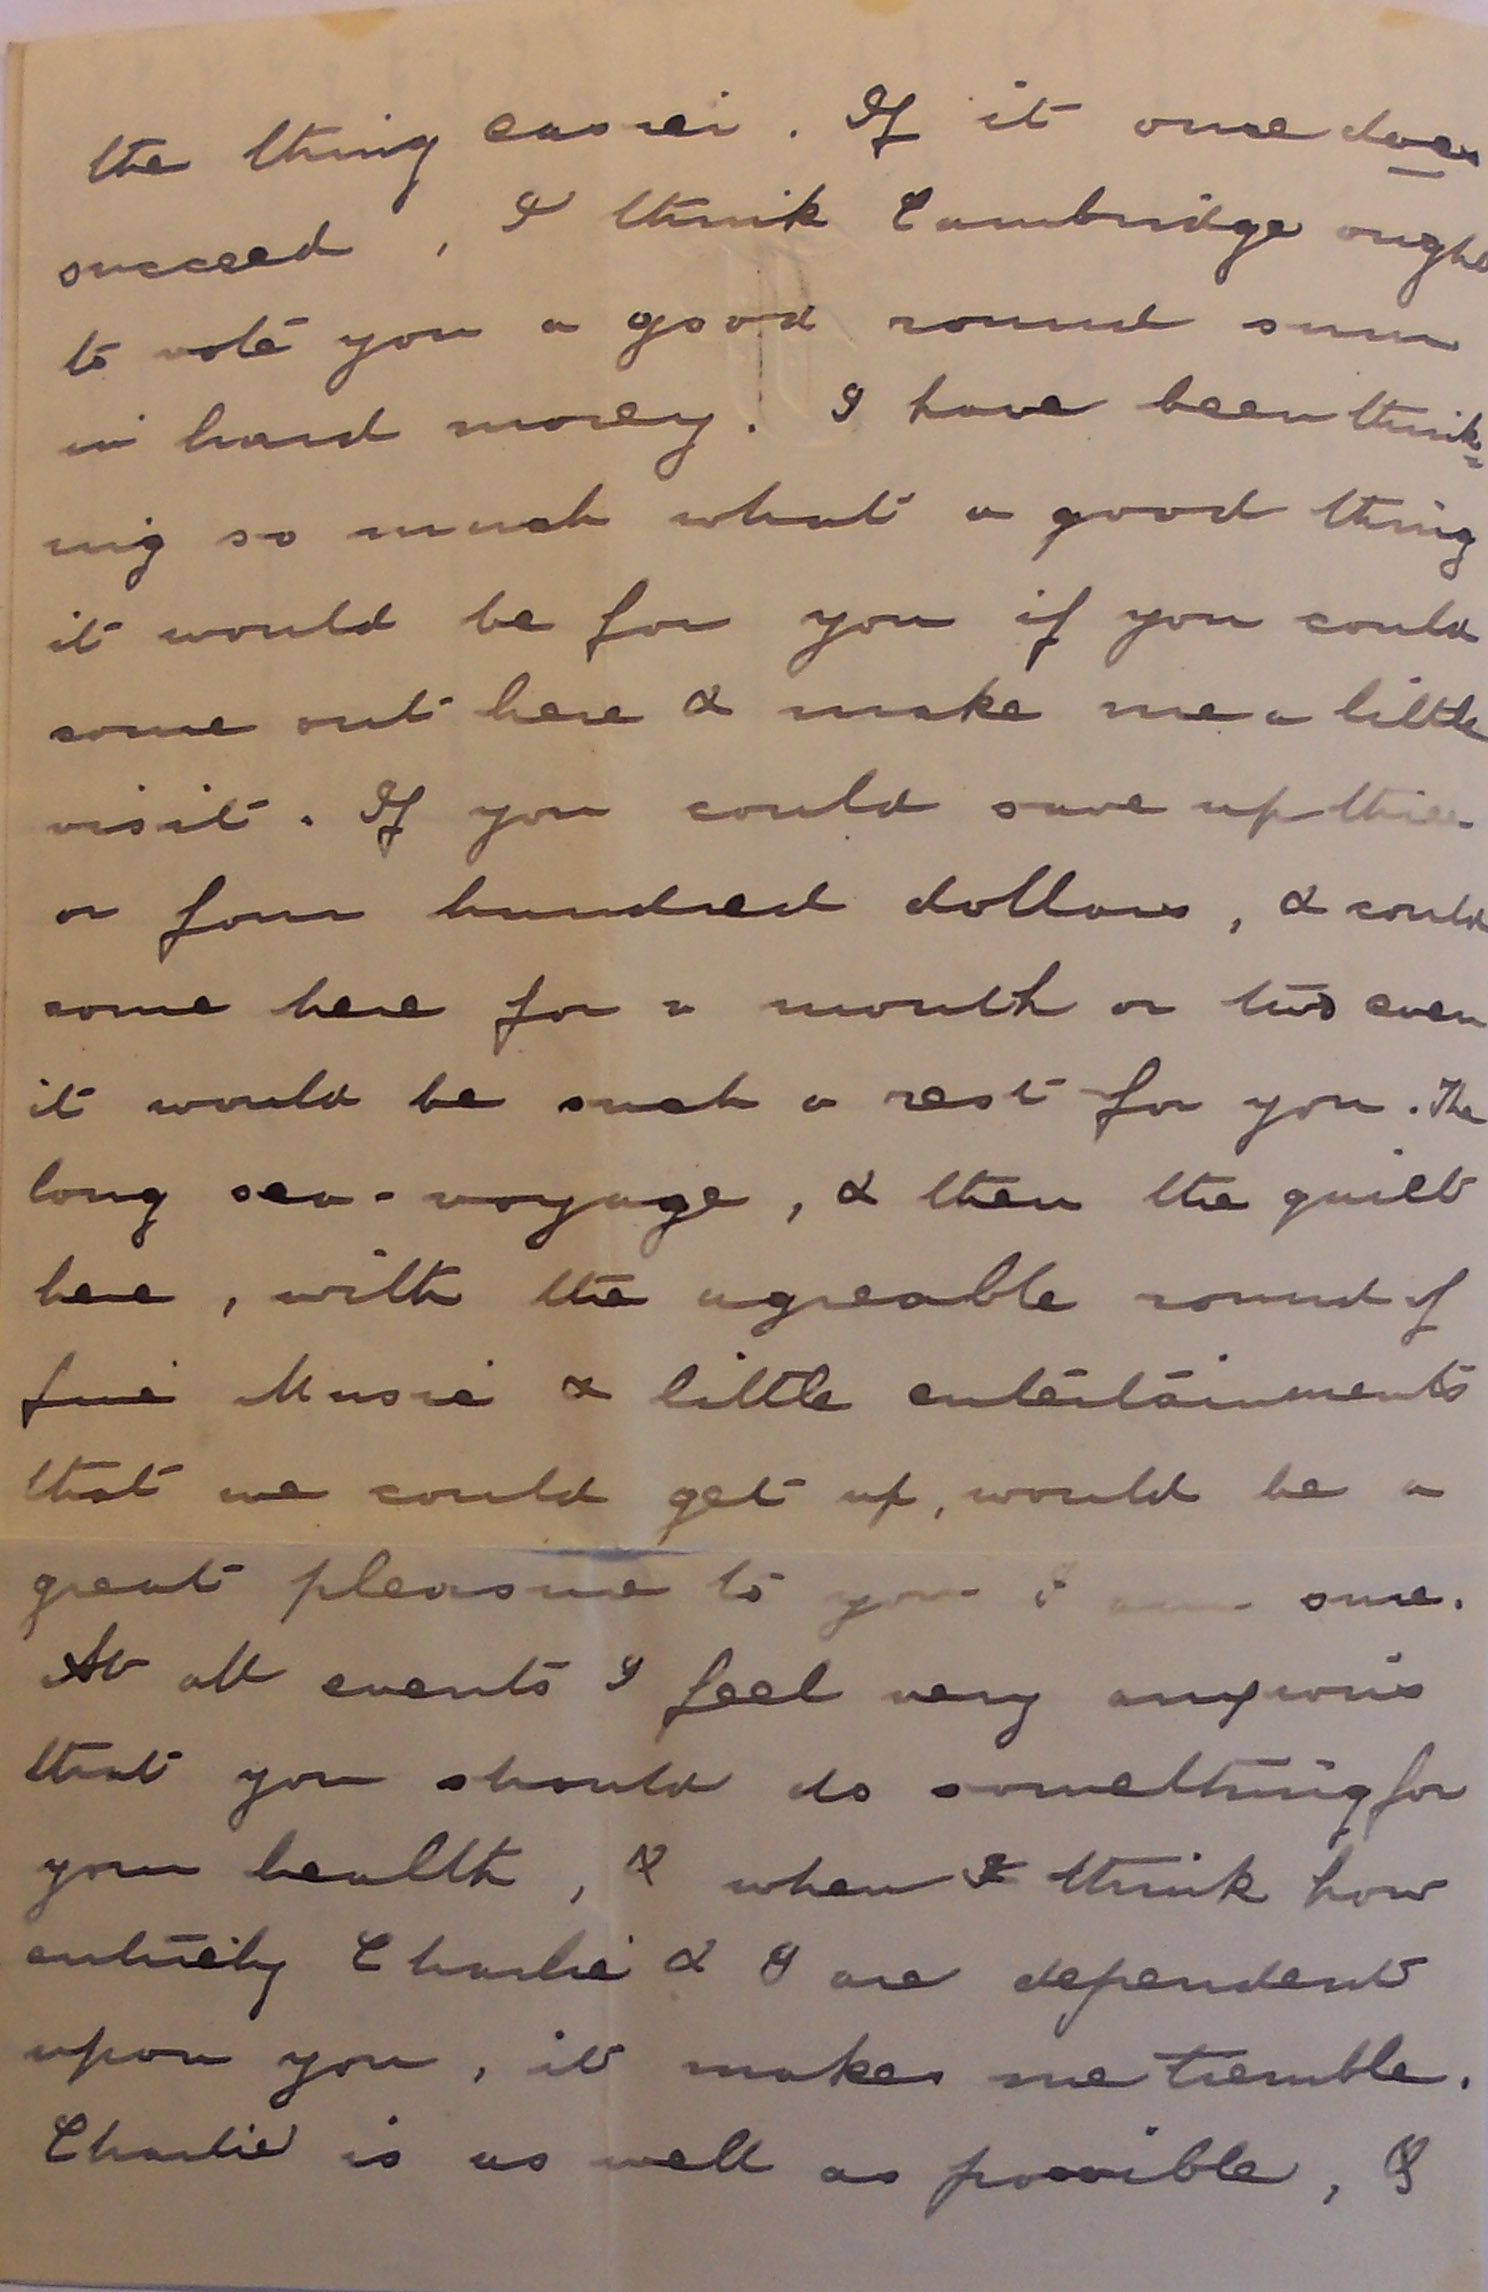 the thing easier. If it once does
succeed, I think Cambridge ought
to vote you a good round sum
in hard money. I have been think=
ing so much what a good thing
it would be for you if you could
come out here & make me a little
visit. If you could save up three
or four hundred dollars, & could
come here for a month or two even
it would be such a rest for you. The
long sea-voyage, & then the quiet
here, with the agreable round of
fine Music & little entertainments
that we could get up, would be a
great pleasure to you I am sure.
At all events I feel very anxious
that you should do something for
your health, & when I think how
entirely Charlie & I are dependent
upon you, it makes me tremble.
Charlie is as well as possible, &